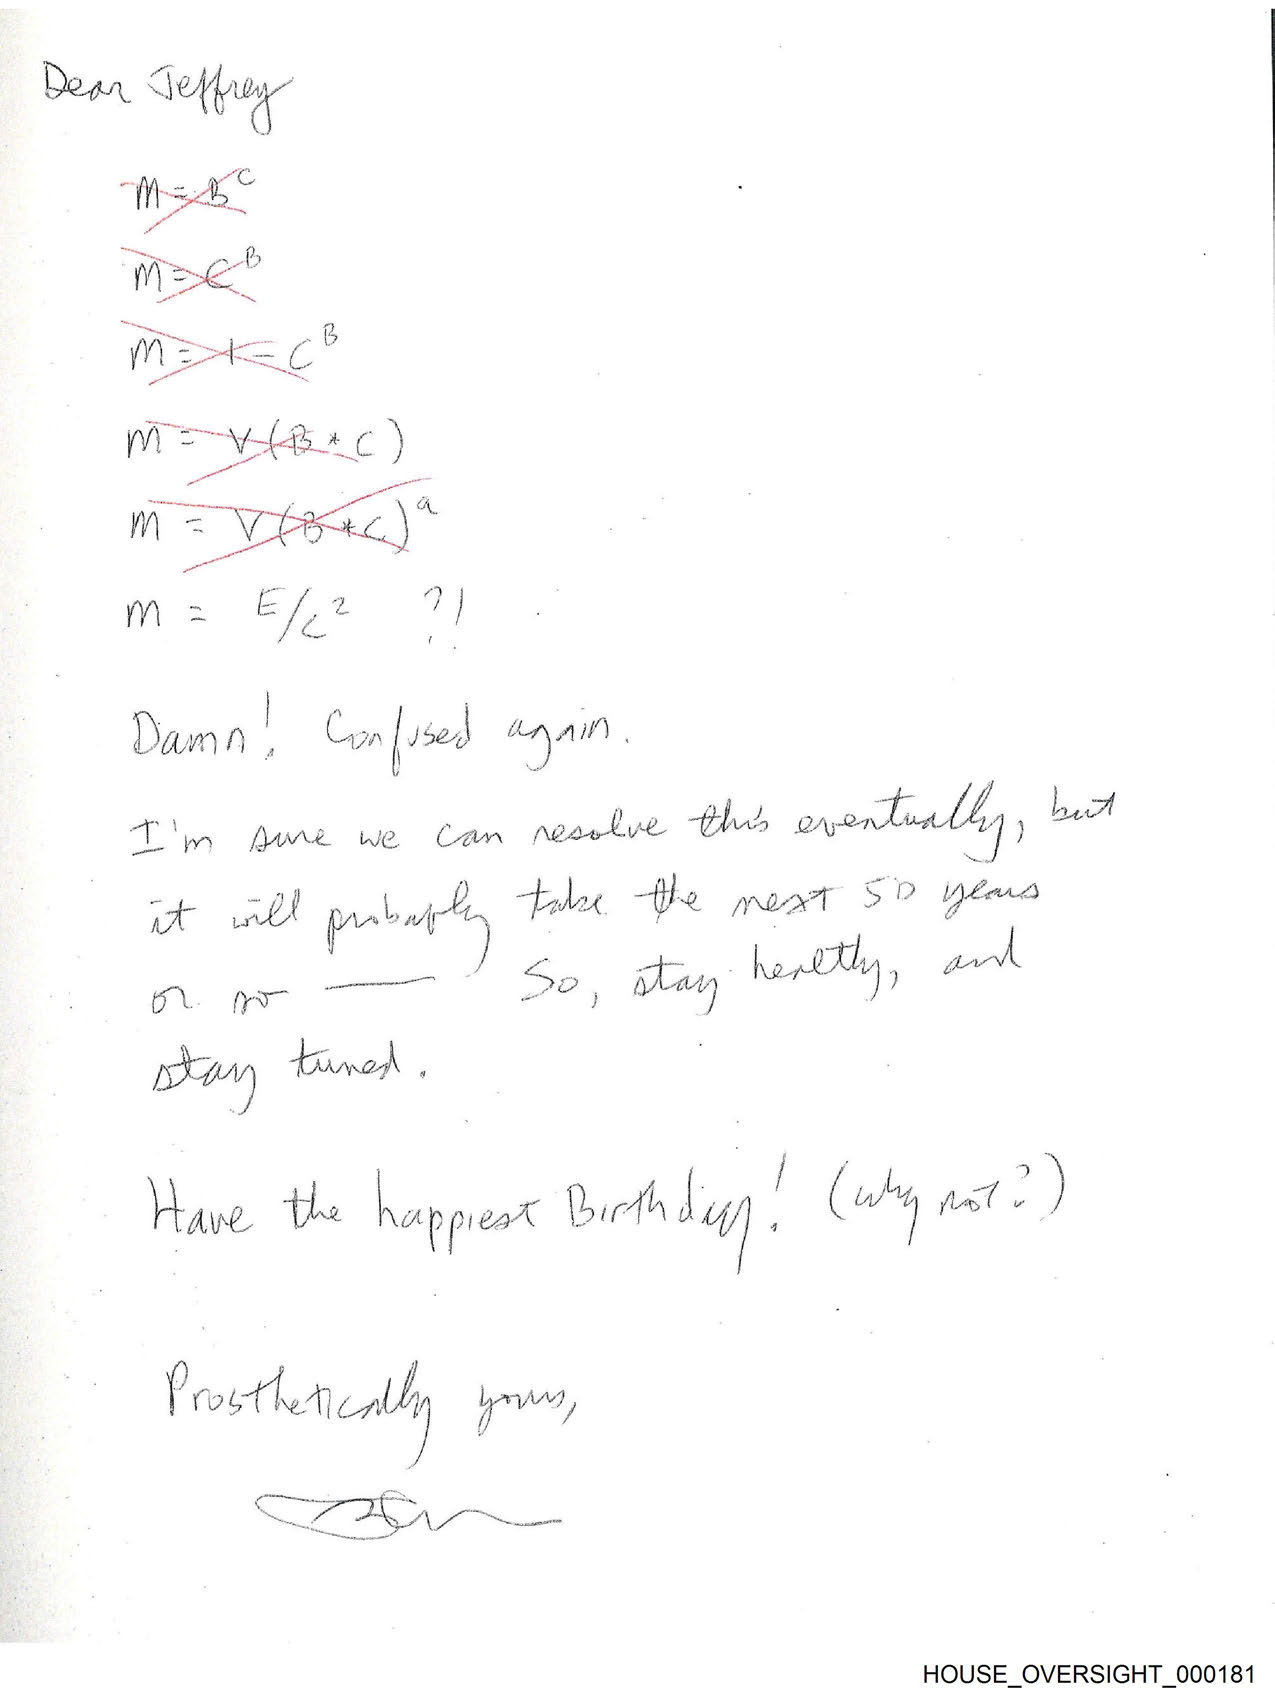 Dear Jeffrey
m = B^C
m = C^B
m = 1 = C^B
m = V (B * C)
m = V (B * C)^a
m = E/c² ?!
Damn! Confused again.
I'm sure we can resolve this eventually, but
it will probably take the next 50 years
or so — So, stay healthy, and
stay tuned.
Have the happiest Birthday! (why not?)
Prosthetically yours,
HOUSE_OVERSIGHT_000181